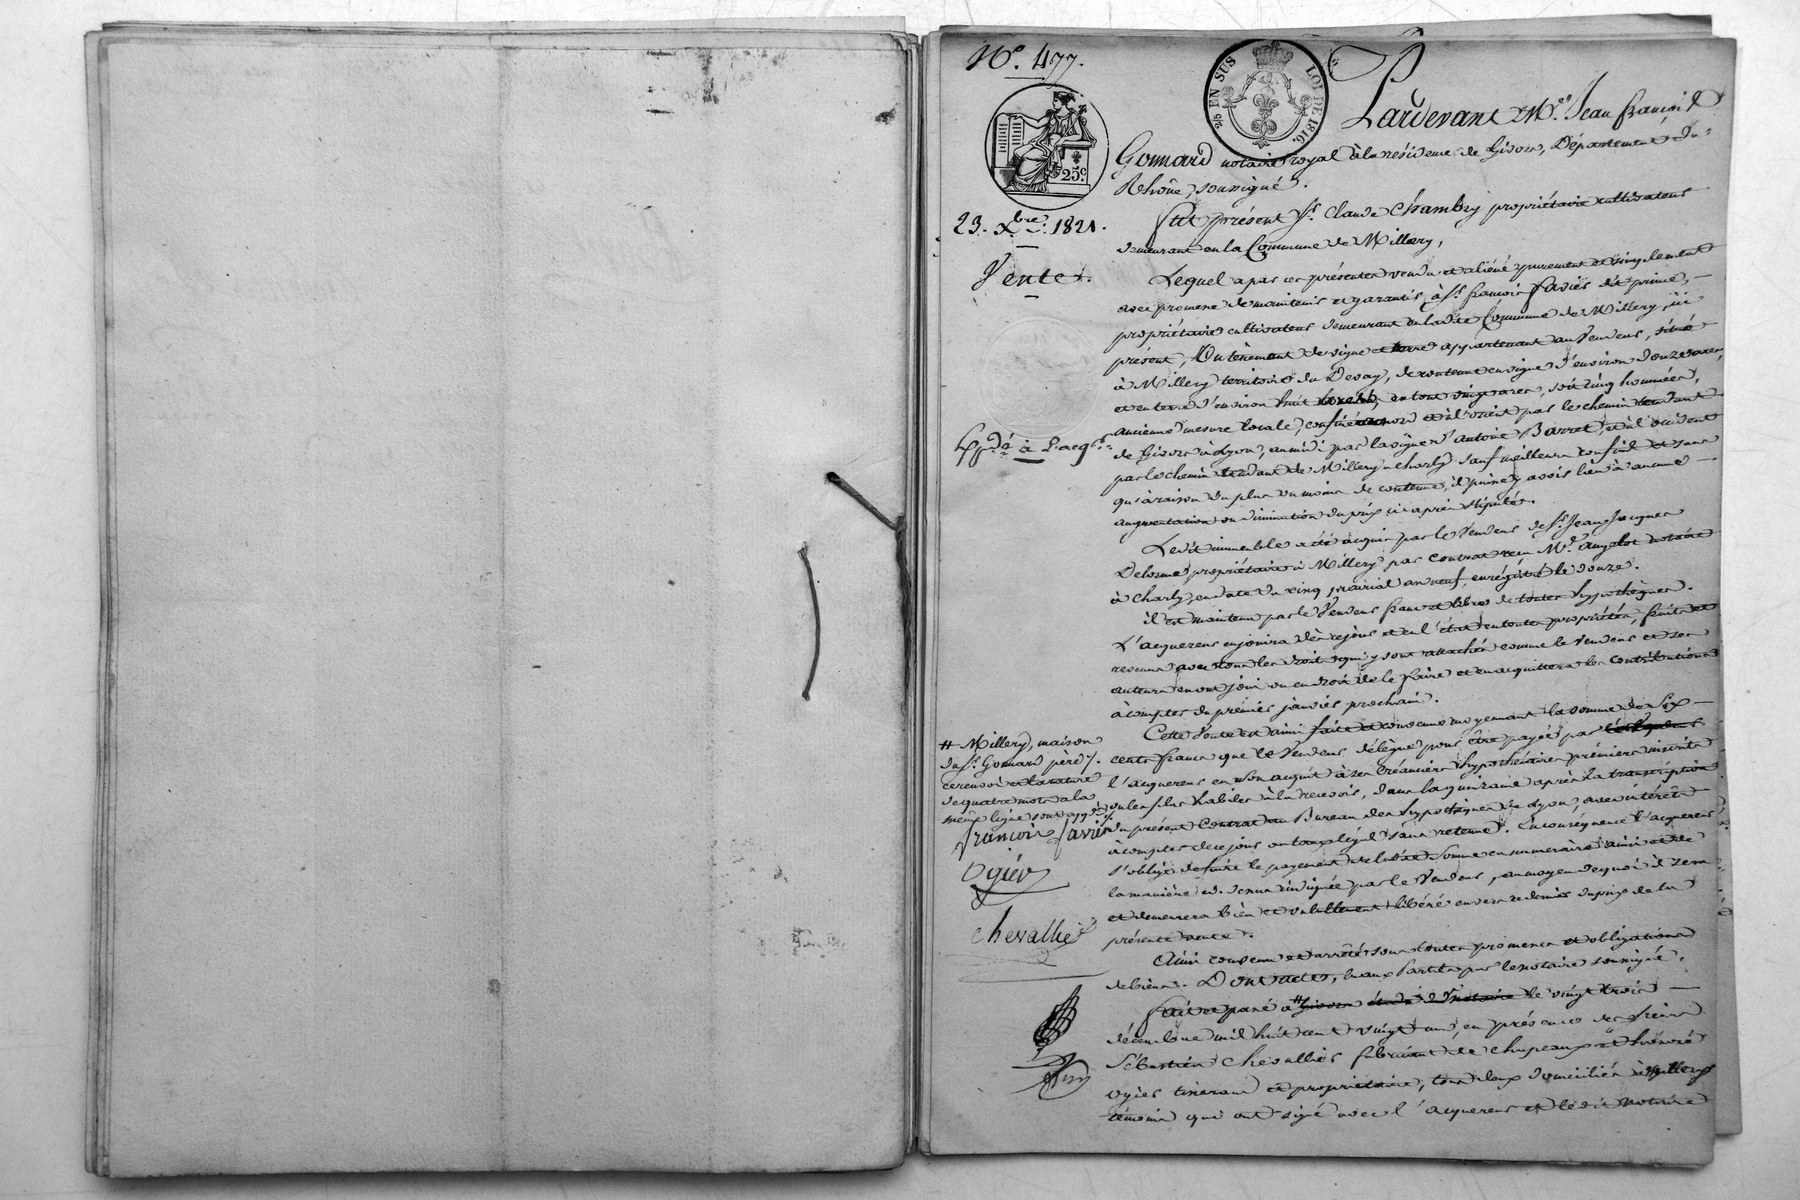 N.º 477.
EN SUS
LOI DE 1816.
25.c
23. Xbre. 1821.
Vente.
Expdé à l'acqr.
Pardevant Me. Jean françois
Gonnard notaire royal à la résidence de Givors, Département du
Rhône, soussigné.
fut présent Sr. Claude Chambry propriétaire cultivateur
demeurant en la Commune de Millery,
Lequel a par ces présentes vendu et aliéné purement et simplement
avec promesse de maintenir et garantir, à Sr. françois favier dit prime,
propriétaire cultivateur demeurant en ladite Commune de Millery, ici
présent, Un tènement de vigne et terre appartenant au Vendeur, situé
à Millery territoire du Devay, de contenu en vigne d'environ douze ares,
et en terre d'environ huit ares, en tout vingt ares, soit cinq hommées,
ancienne mesure locale, confiné au nord et à l'orient par le chemin tendant
de Givors à Lyon, au midi par la vigne d'antoine Barret, et à l'occident
par le chemin tendant de Millery à charly sauf meilleurs confins et sans
qu'à raison du plus ou moins de contenue, il puisse y avoir lieu à aucune
augmentation ou diminution du prix ci-après stipulé.
Ledit immeuble a été acquis par le Vendeur de Sr. Jean Jacques
Delorme propriétaire à Millery par contrat reçu Me. angelot notaire
à Charly, en date du cinq prairial an neuf, enrégistré le douze.
il est maintenu par le Vendeur franc et libre de toutes hypothèques.
L'acquereur en jouira dès ce jour et en l'état en toute propriété, fruits et
revenus avec tous les droits qui y sont attachés comme le Vendeur et ses
auteurs en ont joui ou eu droit de le faire et en acquittera les contributions
à compter du premier janvier prochain.
Cette Vente est ainsi faite et convenue moyennant la somme de six
cents francs que le Vendeur délègue pour être payée par
l'acquereur en son acquit à ses Créanciers hypothécaires premiers inscrits
ou les plus habiles à la recevoir, dans la quinzaine après la transcription
du présent Contrat au Bureau des hypothèques de Lyon, avec intérêts
à compter de ce jour au taux légal sans retenue. En conséquence l'acquereur
s'oblige de faire le payement de ladite Somme en numéraire ainsi et de
la manière ci-dessus indiquée par le Vendeur, au moyen de quoi il sera
et demeurera bien et valablement libéré envers ce dernier du prix de la
présente vente.
Ainsi convenu et arrêté sous toutes promesses et obligations
de biens. Dont acte, lu aux Parties par le notaire soussigné.
fait et passé à # Givors étude du notaire le vingt trois
décembre mil huit cent vingt un, en présence des sieurs
Sébastien Chevallier fabricant de chapeaux et
ogier tisserand et propriétaire, tous deux domiciliés à Millery
témoins qui ont signé avec l'acquereur et ledit notaire
# Millery, maison
du Sr. Gonnard père.
ce renvoi et la rature
de quatre mots à la
même ligne sont appés.
françois favier
Ogier
chevallier